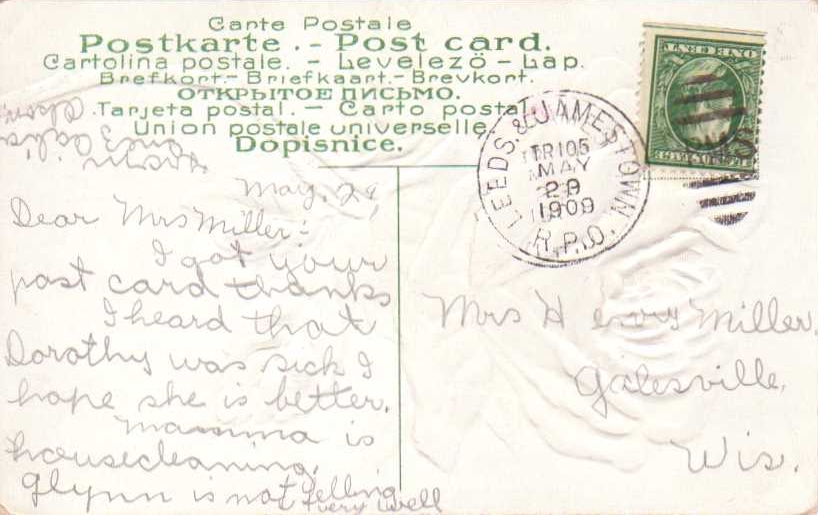 Carte Postale
Postkarte. - Post card.
Cartolina postale. - Levelezö - Lap.
Brefkort. - Briefkaart. - Brevkort.
ОТКРЫТОЕ ПИСЬМО.
Tarjeta postal. - Carto postal.
Union postale universelle.
Dopisnice.
LEEDS & JAMESTOWN
TR105
MAY
29
1909
R.P.O.
May, 29,
Dear Mrs Miller:-
I got your
post card thanks
I heard that
Dorothy was sick I
hope she is better.
Mamma is
housecleaning.
Glynn is not felling
very well
Mrs Henry Miller.
Galesville,
Wis.